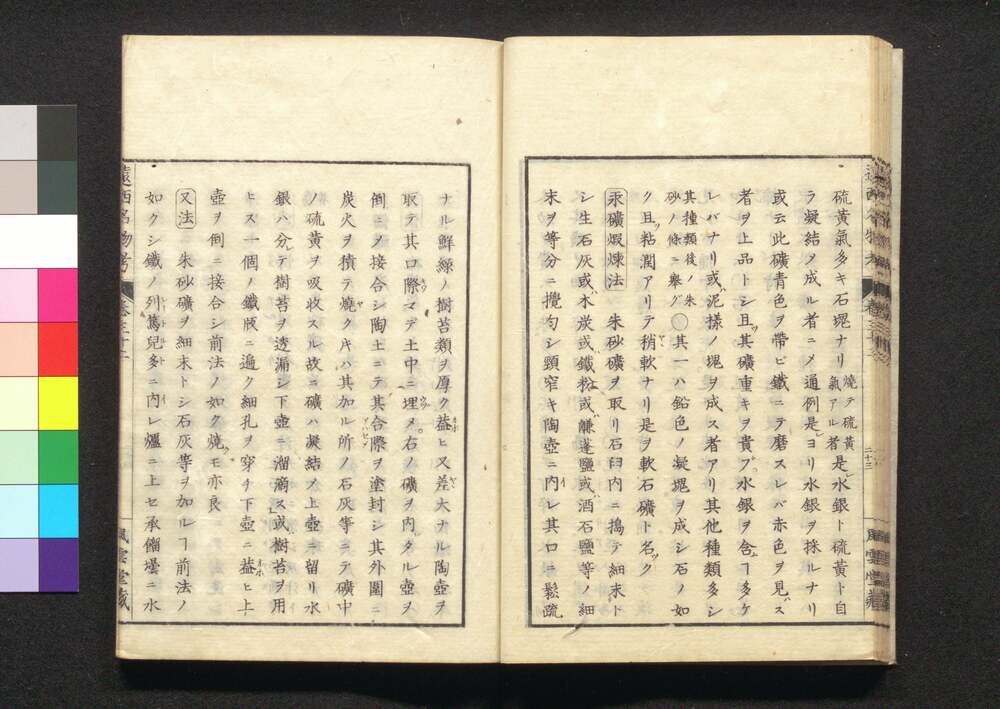 硫黄氣多キ石塊ナリ 燒テ硫黄氣アル者 是レ水銀ト硫黄ト自
ラ凝結メ成ル者ニメ通例是レヨリ水銀ヲ採ルナリ
或云此礦青色ヲ帶ビ鐵ニテ磨スレバ赤色ヲ見ハス
者ヲ上品トシ且ツ其礦重キヲ貴ブ水銀ヲ含ムヿ多ケ
レバナリ或ハ泥樣ノ塊ヲ成ス者アリ其他種類多シ
其種類後ノ朱砂ノ條ニ擧グ ○其一ハ鉛色ノ凝塊ヲ成シ石ノ如
ク且ツ粘潤アリテ稍軟ナリ是ヲ軟石礦ト名ヅク
汞礦煆煉法 朱砂礦ヲ取リ石臼内ニ搗テ細末ト
シ生石灰或ハ木炭或ハ鐵粉或ハ鹻蓬鹽或ハ酒石鹽等ノ細
末ヲ等分ニ攪匀シ頸窄キ陶壺ニ内レ其口ニ鬆疏
ナル鮮綠ノ樹苔類ヲ厚ク葢ヒ又差大ナル陶壺ヲ
取テ其口際マデ土中ニ埋メ右ノ礦ヲ内タル壺ヲ
倒ニメ接合シ陶土ニテ其合際ヲ塗封シ其外圍ニ
炭火ヲ積テ燒クキハ其加ル所ノ石灰等ニテ礦中
ノ硫黄ヲ吸收スル故ニ礦ハ凝結メ上壺ニ留リ水
銀ハ分レテ樹苔ヲ透漏シ下壺ニ溜滴ス或ハ樹苔ヲ用
ヒス一個ノ鐵版ニ遍ク細孔ヲ穿チ下壺ニ葢ヒ上
壺ヲ倒ニ接合シ前法ノ如ク燒クモ亦良
又法 朱砂礦ヲ細末トシ石灰等ヲ加ルヿ前法ノ
如クシ鐵ノ列篤兒多ニ内レ爐ニ上セ承餾壜ニ水
遠西名物考
風雲堂藏
二十三